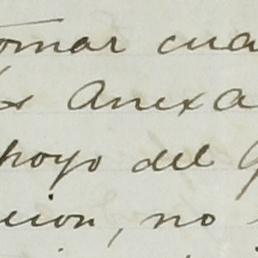 tomar cua
Anexa
poyo del G
cion, no